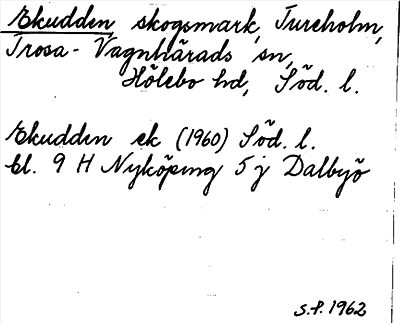 Ekudden skogsmark, Tureholm,
Trosa-Vagnhärads sn,
Hölebo hd, Söd. l.
Ekudden ek (1960) Söd. l.
bl. 9 H Nyköping 5 j Dalbyö
S.P. 1962